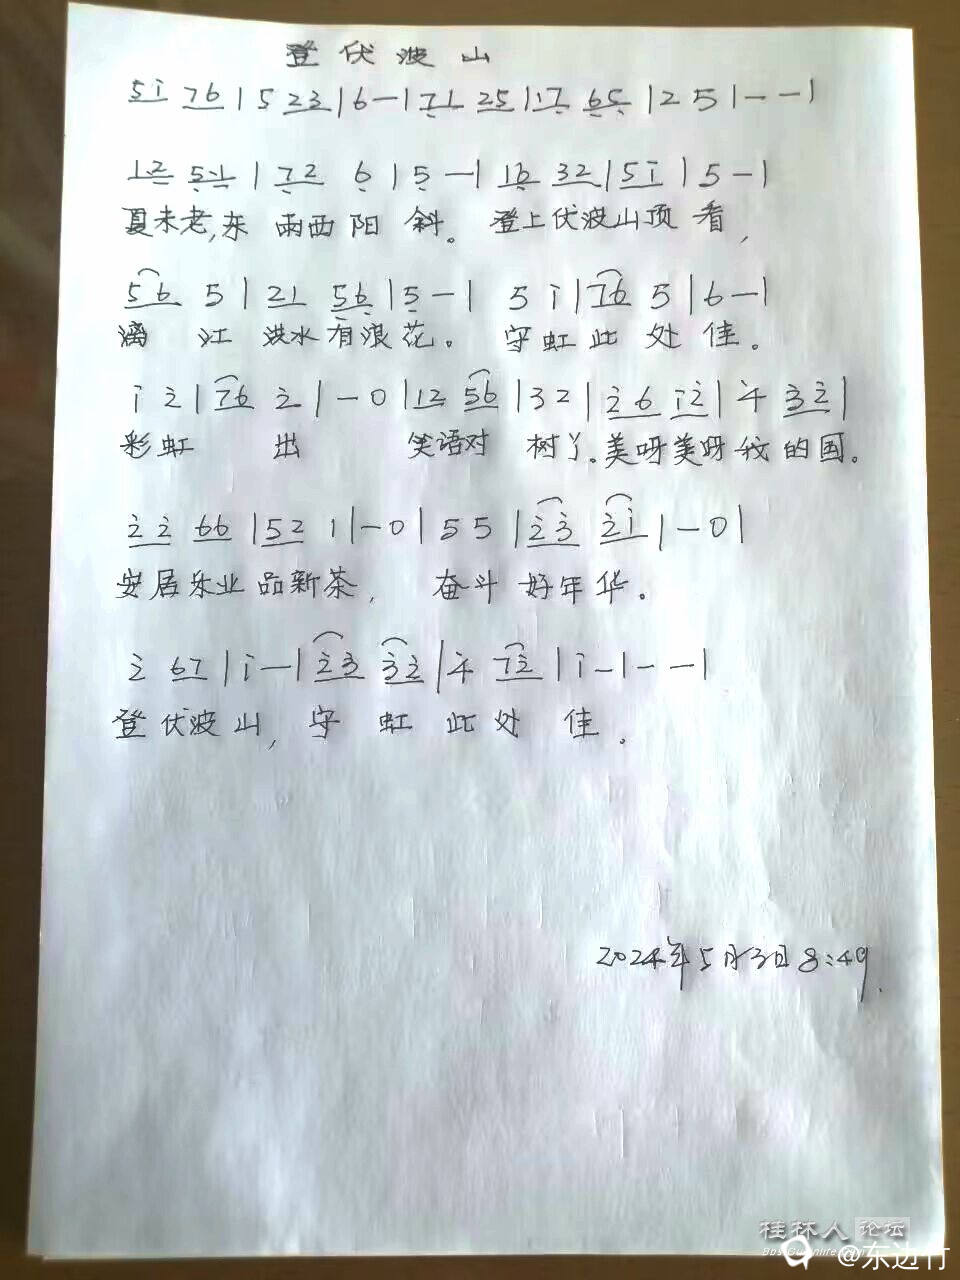 登伏波山
5i 76 | 5 23 | 6 - | 71 25 | 17 65 | 2 5 | - - |
12 51 | 72 6 | 5 - | 16 32 | 5i | 5 - |
夏未老,东 雨西阳 斜。 登上伏波山顶 看,
56 5 | 21 56 | 5 - | 5 i | 76 5 | 6 - |
漓 江 洪水有浪花。 守虹此 处 佳。
i 2 | 76 2 | - 0 | 12 56 | 32 | 26 i2 | 4 32 |
彩虹 出 笑语对 树丫。美呀美呀我的国。
22 66 | 52 1 | - 0 | 55 | 23 2i | - 0 |
安居乐业品新茶, 奋斗 好年华。
2 67 | i - | 23 32 | 4 72 | i - | - - |
登伏波山, 守 虹 此处 佳。
2024年5月3日8:49.
桂林人论坛
@东边竹